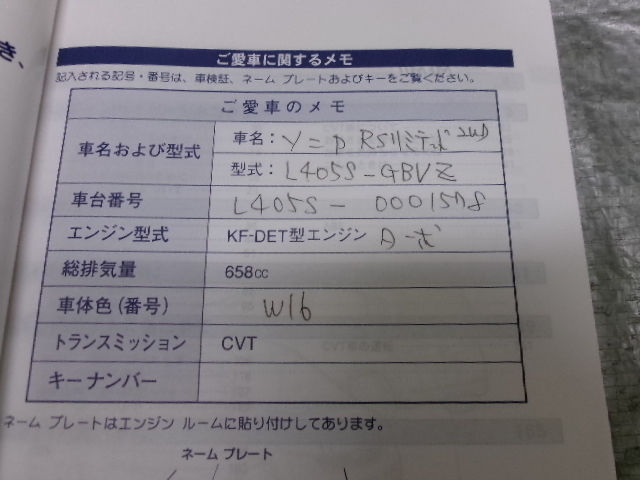 き、
ご愛車に関するメモ
記入される記号・番号は、車検証、ネーム プレートおよびキーをご覧ください。
ご愛車のメモ
車名および型式
車名： ソニカ RSリミテッド 2WD
型式： L405S-GBVZ
車台番号
L405S- 0001578
エンジン型式
KF-DET型エンジン ターボ
総排気量
658cc
車体色（番号）
W16
トランスミッション
CVT
キーナンバー
ネーム プレートはエンジン ルームに貼り付けしてあります。
ネーム プレート